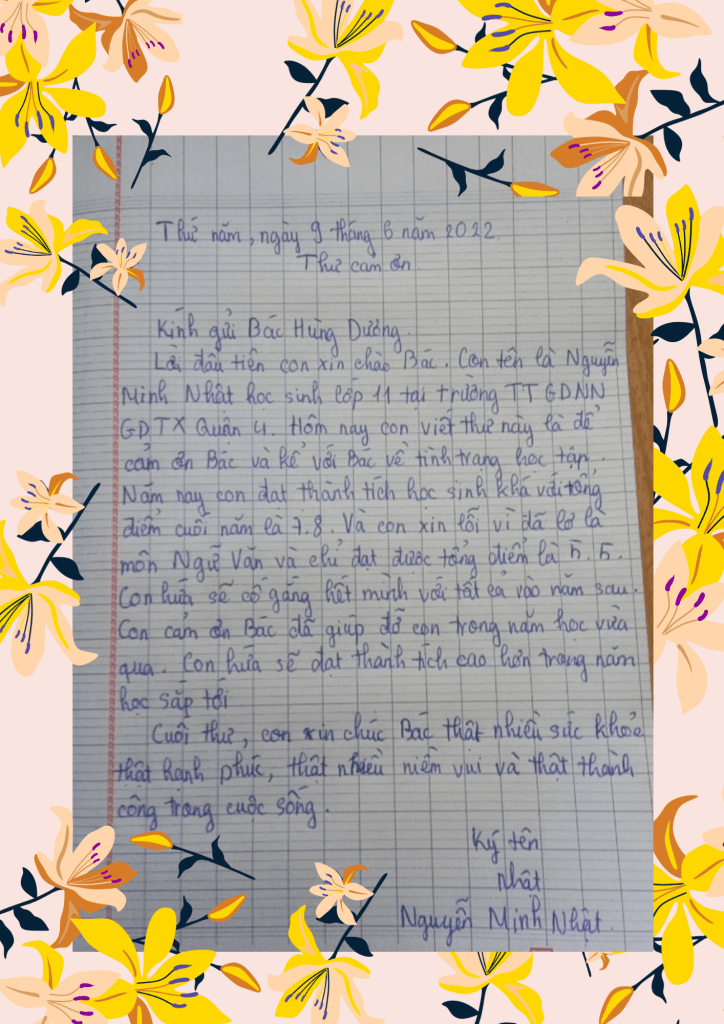 Thứ năm, ngày 9 tháng 6 năm 2022
Thư cảm ơn
Kính gửi Bác Hùng Dương.
Lời đầu tiên con xin chào Bác. Con tên là Nguyễn
Minh Nhật học sinh lớp 11 tại trường TT GDNN
GDTX Quận 4. Hôm nay con viết thư này là để
cảm ơn Bác và kể với Bác về tình trạng học tập.
Năm nay con đạt thành tích học sinh khá với tổng
điểm cuối năm là 7.8. Và con xin lỗi vì đã lơ là
môn Ngữ Văn và chỉ đạt được tổng điểm là 5.5.
Con hứa sẽ cố gắng hết mình với tất cả vào năm sau.
Con cảm ơn Bác đã giúp đỡ con trong năm học vừa
qua. Con hứa sẽ đạt thành tích cao hơn trong năm
học sắp tới
Cuối thư, con xin chúc Bác thật nhiều sức khỏe
thật hạnh phúc, thật nhiều niềm vui và thật thành
công trong cuộc sống.
Ký tên
Nhật
Nguyễn Minh Nhật.